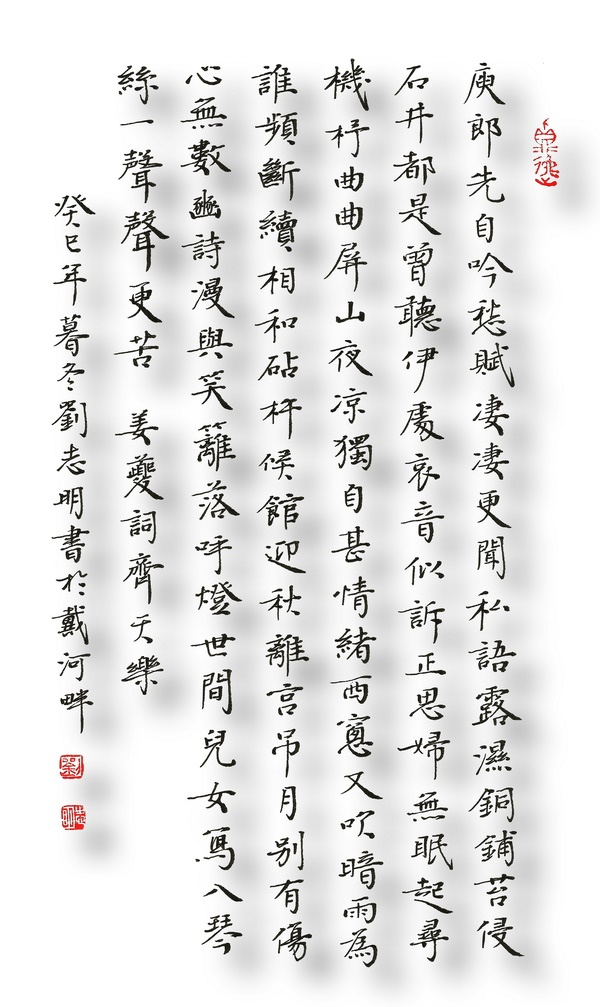 庾郎先自吟愁賦凄凄更聞私語露濕銅鋪苔侵
石井都是曾聽伊處哀音似訴正思婦無眠起尋
機杼曲曲屏山夜凉獨自甚情緒西窻又吹暗雨為
誰頻斷續相和砧杵候館迎秋離宮吊月別有傷
心無數豳詩漫與笑籬落呼燈世間兒女寫入琴
絲一聲聲更苦 姜夔詞齊天樂
癸巳年暮冬劉志明書於戴河畔
劉
志明